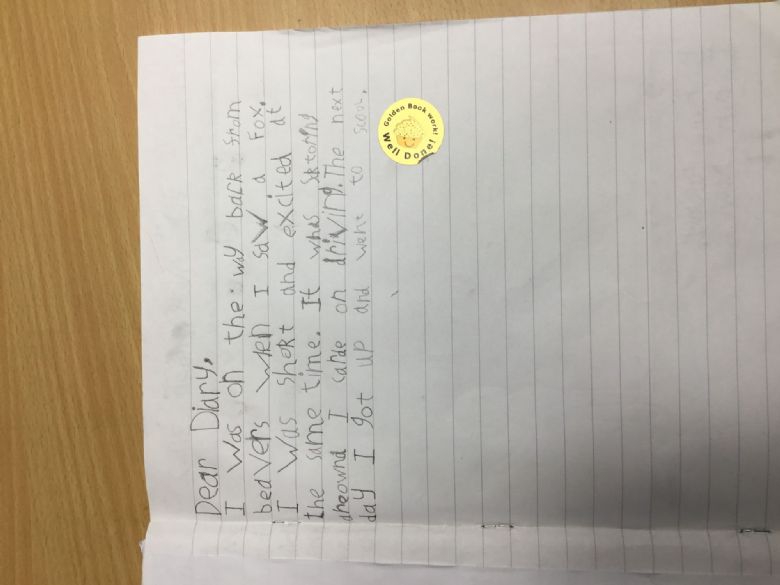 Dear Diary,
I was on the way back from
bedvers wen I saw a Fox.
I was short and excited at
the same time. It whas
areownd I carde on driving. The next
day I got up and went to scool.
Golden Book work!
Well Done!